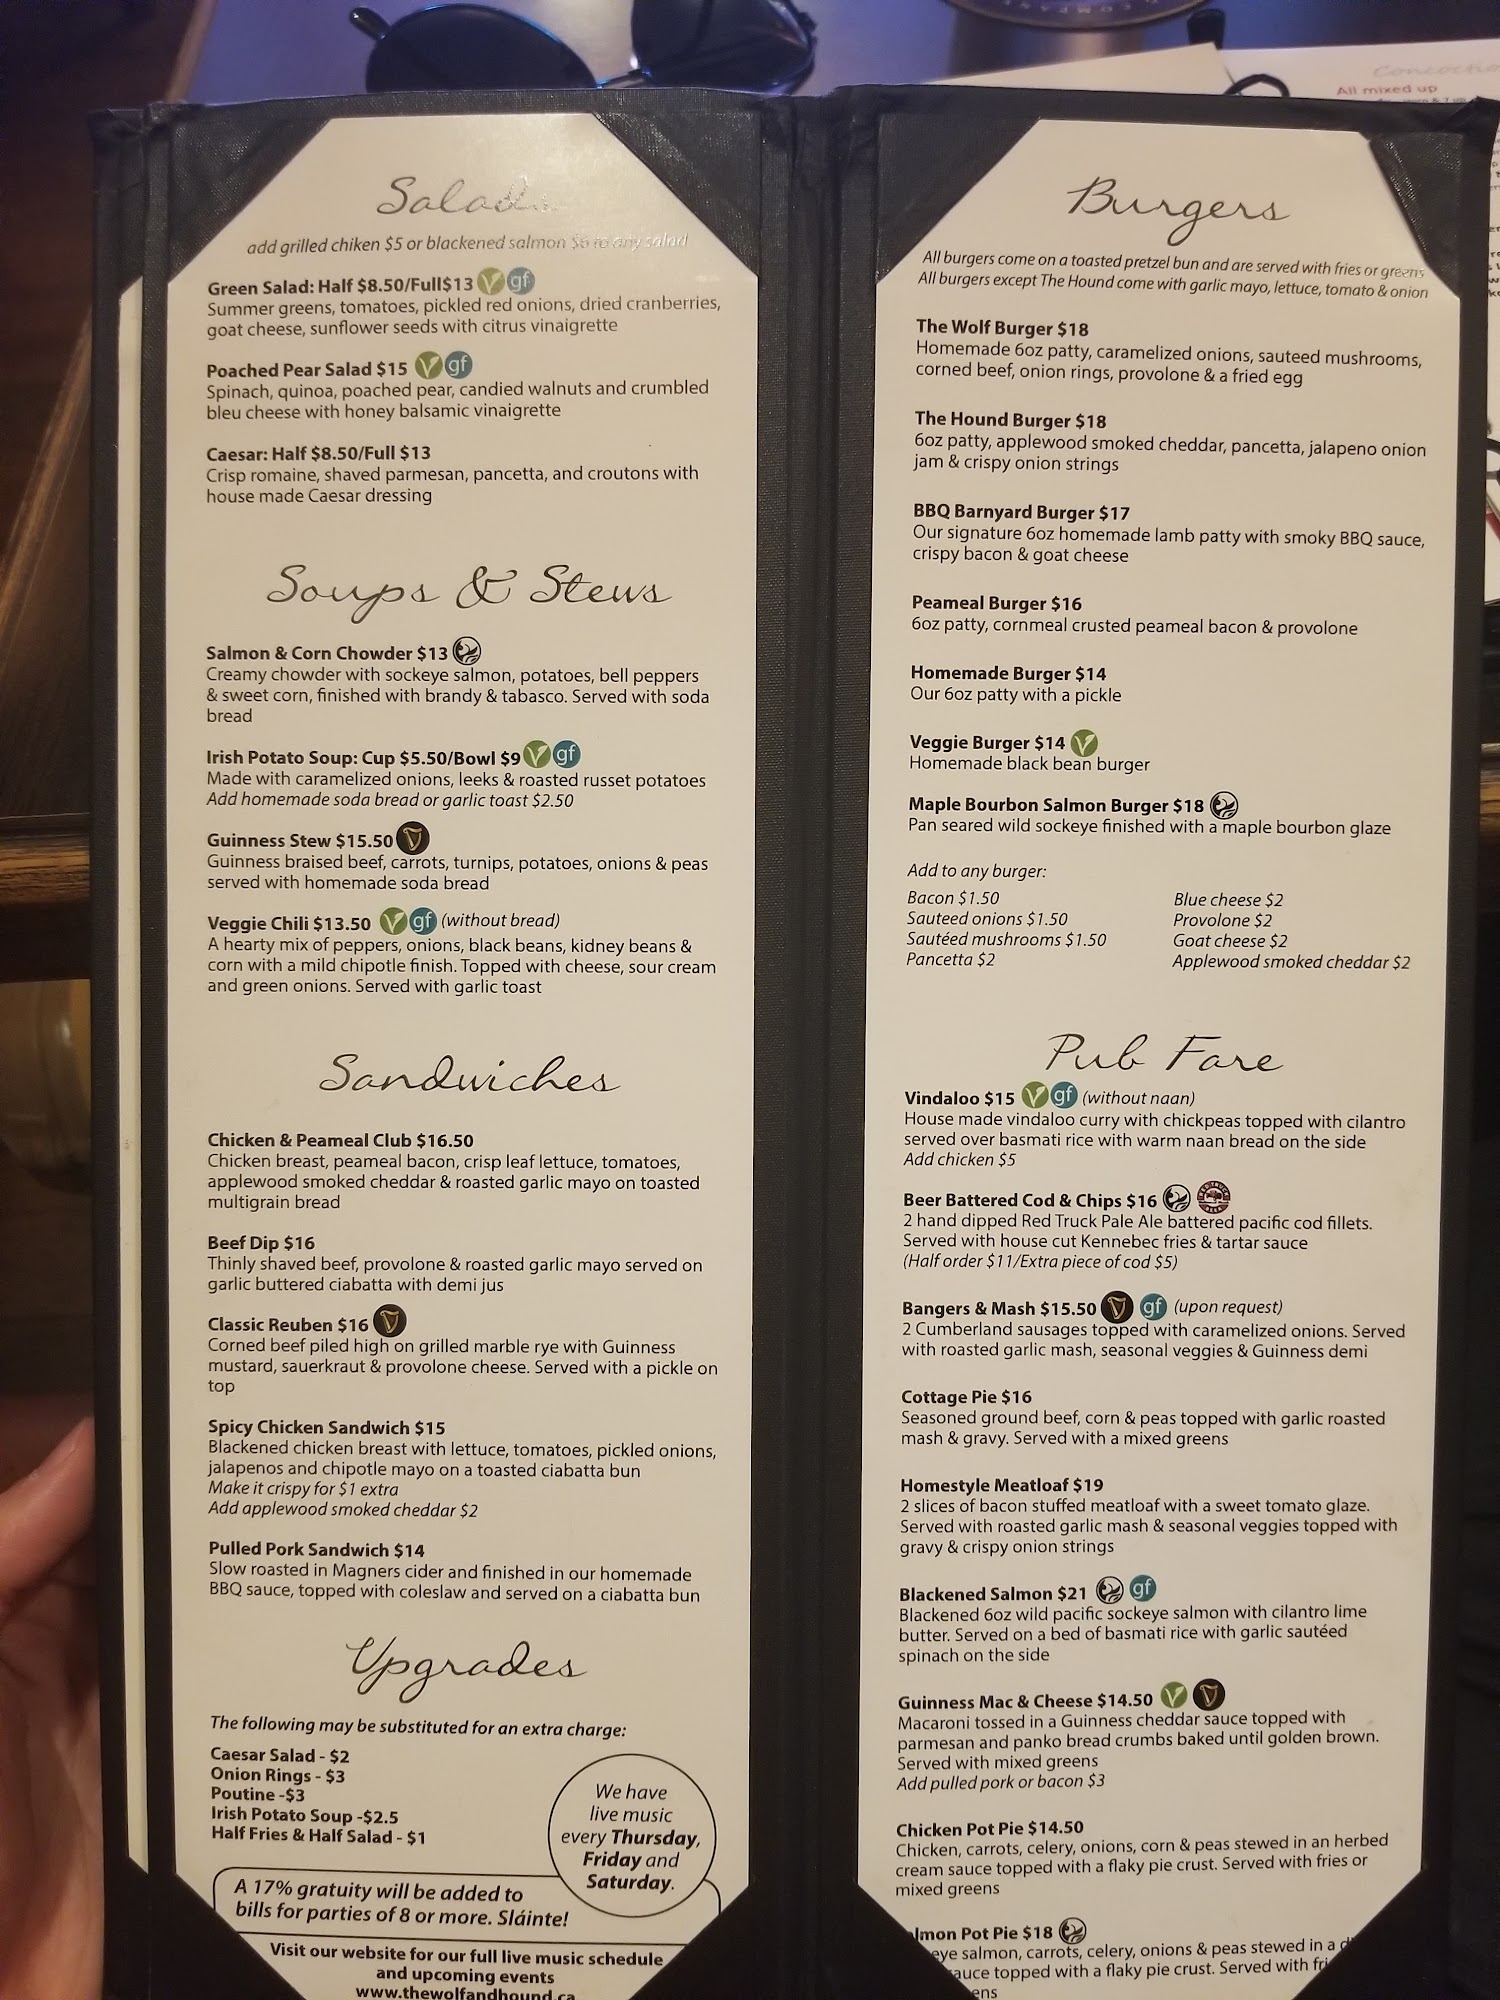 Concoctio
All mixed up
Salads
add grilled chiken $5 or blackened salmon $6 to any salad
Green Salad: Half $8.50/Full$13 V gf
Summer greens, tomatoes, pickled red onions, dried cranberries,
goat cheese, sunflower seeds with citrus vinaigrette
Poached Pear Salad $15 V gf
Spinach, quinoa, poached pear, candied walnuts and crumbled
bleu cheese with honey balsamic vinaigrette
Caesar: Half $8.50/Full $13
Crisp romaine, shaved parmesan, pancetta, and croutons with
house made Caesar dressing
Soups & Stews
Salmon & Corn Chowder $13
Creamy chowder with sockeye salmon, potatoes, bell peppers
& sweet corn, finished with brandy & tabasco. Served with soda
bread
Irish Potato Soup: Cup $5.50/Bowl $9 V gf
Made with caramelized onions, leeks & roasted russet potatoes
Add homemade soda bread or garlic toast $2.50
Guinness Stew $15.50
Guinness braised beef, carrots, turnips, potatoes, onions & peas
served with homemade soda bread
Veggie Chili $13.50 V gf (without bread)
A hearty mix of peppers, onions, black beans, kidney beans &
corn with a mild chipotle finish. Topped with cheese, sour cream
and green onions. Served with garlic toast
Sandwiches
Chicken & Peameal Club $16.50
Chicken breast, peameal bacon, crisp leaf lettuce, tomatoes,
applewood smoked cheddar & roasted garlic mayo on toasted
multigrain bread
Beef Dip $16
Thinly shaved beef, provolone & roasted garlic mayo served on
garlic buttered ciabatta with demi jus
Classic Reuben $16
Corned beef piled high on grilled marble rye with Guinness
mustard, sauerkraut & provolone cheese. Served with a pickle on
top
Spicy Chicken Sandwich $15
Blackened chicken breast with lettuce, tomatoes, pickled onions,
jalapenos and chipotle mayo on a toasted ciabatta bun
Make it crispy for $1 extra
Add applewood smoked cheddar $2
Pulled Pork Sandwich $14
Slow roasted in Magners cider and finished in our homemade
BBQ sauce, topped with coleslaw and served on a ciabatta bun
Upgrades
The following may be substituted for an extra charge:
Caesar Salad - $2
Onion Rings - $3
Poutine -$3
Irish Potato Soup -$2.5
Half Fries & Half Salad - $1
We have
live music
every Thursday,
Friday and
Saturday.
A 17% gratuity will be added to
bills for parties of 8 or more. Sláinte!
Visit our website for our full live music schedule
and upcoming events
www.thewolfandhound.ca
Burgers
All burgers come on a toasted pretzel bun and are served with fries or greens
All burgers except The Hound come with garlic mayo, lettuce, tomato & onion
The Wolf Burger $18
Homemade 6oz patty, caramelized onions, sauteed mushrooms,
corned beef, onion rings, provolone & a fried egg
The Hound Burger $18
6oz patty, applewood smoked cheddar, pancetta, jalapeno onion
jam & crispy onion strings
BBQ Barnyard Burger $17
Our signature 6oz homemade lamb patty with smoky BBQ sauce,
crispy bacon & goat cheese
Peameal Burger $16
6oz patty, cornmeal crusted peameal bacon & provolone
Homemade Burger $14
Our 6oz patty with a pickle
Veggie Burger $14 V
Homemade black bean burger
Maple Bourbon Salmon Burger $18
Pan seared wild sockeye finished with a maple bourbon glaze
Add to any burger:
Bacon $1.50
Sauteed onions $1.50
Sautéed mushrooms $1.50
Pancetta $2
Blue cheese $2
Provolone $2
Goat cheese $2
Applewood smoked cheddar $2
Pub Fare
Vindaloo $15 V gf (without naan)
House made vindaloo curry with chickpeas topped with cilantro
served over basmati rice with warm naan bread on the side
Add chicken $5
Beer Battered Cod & Chips $16
2 hand dipped Red Truck Pale Ale battered pacific cod fillets.
Served with house cut Kennebec fries & tartar sauce
(Half order $11/Extra piece of cod $5)
Bangers & Mash $15.50 gf (upon request)
2 Cumberland sausages topped with caramelized onions. Served
with roasted garlic mash, seasonal veggies & Guinness demi
Cottage Pie $16
Seasoned ground beef, corn & peas topped with garlic roasted
mash & gravy. Served with a mixed greens
Homestyle Meatloaf $19
2 slices of bacon stuffed meatloaf with a sweet tomato glaze.
Served with roasted garlic mash & seasonal veggies topped with
gravy & crispy onion strings
Blackened Salmon $21 gf
Blackened 6oz wild pacific sockeye salmon with cilantro lime
butter. Served on a bed of basmati rice with garlic sautéed
spinach on the side
Guinness Mac & Cheese $14.50 V
Macaroni tossed in a Guinness cheddar sauce topped with
parmesan and panko bread crumbs baked until golden brown.
Served with mixed greens
Add pulled pork or bacon $3
Chicken Pot Pie $14.50
Chicken, carrots, celery, onions, corn & peas stewed in an herbed
cream sauce topped with a flaky pie crust. Served with fries or
mixed greens
lmon Pot Pie $18
eye salmon, carrots, celery, onions & peas stewed in a d
auce topped with a flaky pie crust. Served with fri
ens